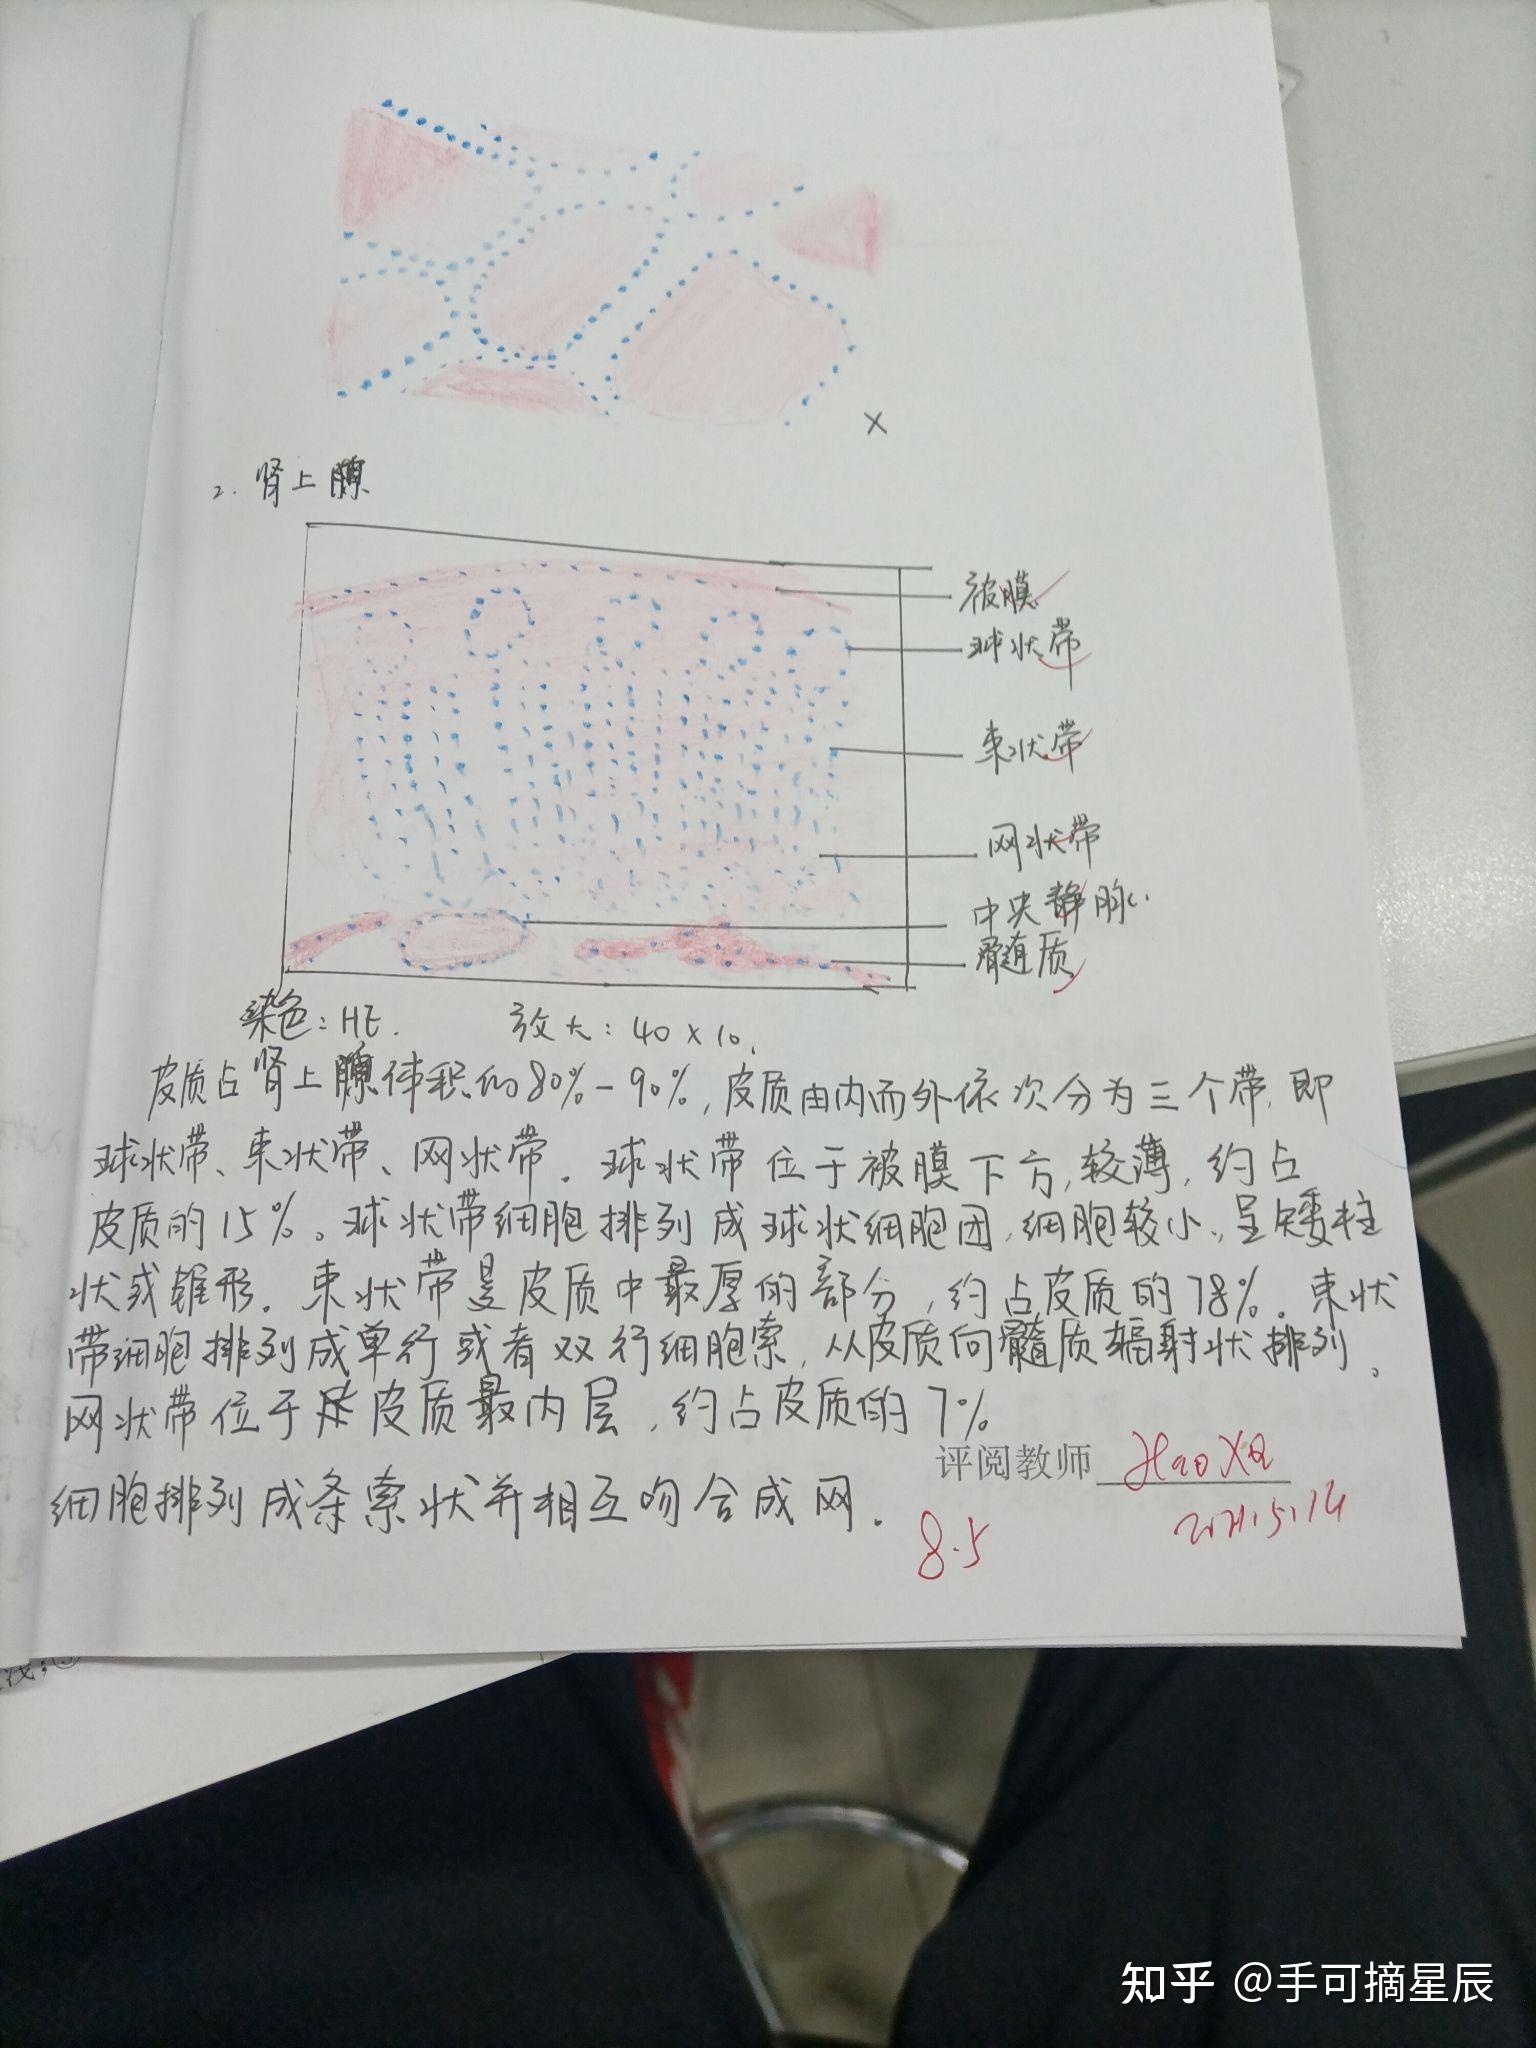 ×
2. 肾上腺
被膜
球状带
束状带
网状带
中央静脉
髓质
染色：HE. 放大：40×10.
皮质占肾上腺体积的80%-90%，皮质由内而外依次分为三个带，即
球状带、束状带、网状带。球状带位于被膜下方，较薄，约占
皮质的15%。球状带细胞排列成球状细胞团，细胞较小，呈矮柱
状或锥形。束状带是皮质中最厚的部分，约占皮质的78%。束状
带细胞排列成单行或者双行细胞索，从皮质向髓质辐射状排列。
网状带位于皮质最内层，约占皮质的7%
评阅教师
细胞排列成条索状并相互吻合成网。
8.5
2021.5.14
知乎 @手可摘星辰